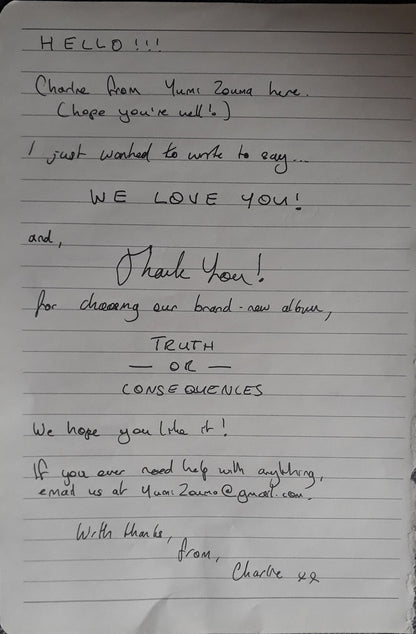 HELLO!!!
Charlie from Yumi Zouma here.
(hope you're well!)
I just wanted to write to say...
WE LOVE YOU!
and,
Thank You!
for choosing our brand-new album,
TRUTH
— OR —
CONSEQUENCES
We hope you like it!
If you ever need help with anything,
email us at YumiZouma@gmail.com.
With thanks,
from,
Charlie xx